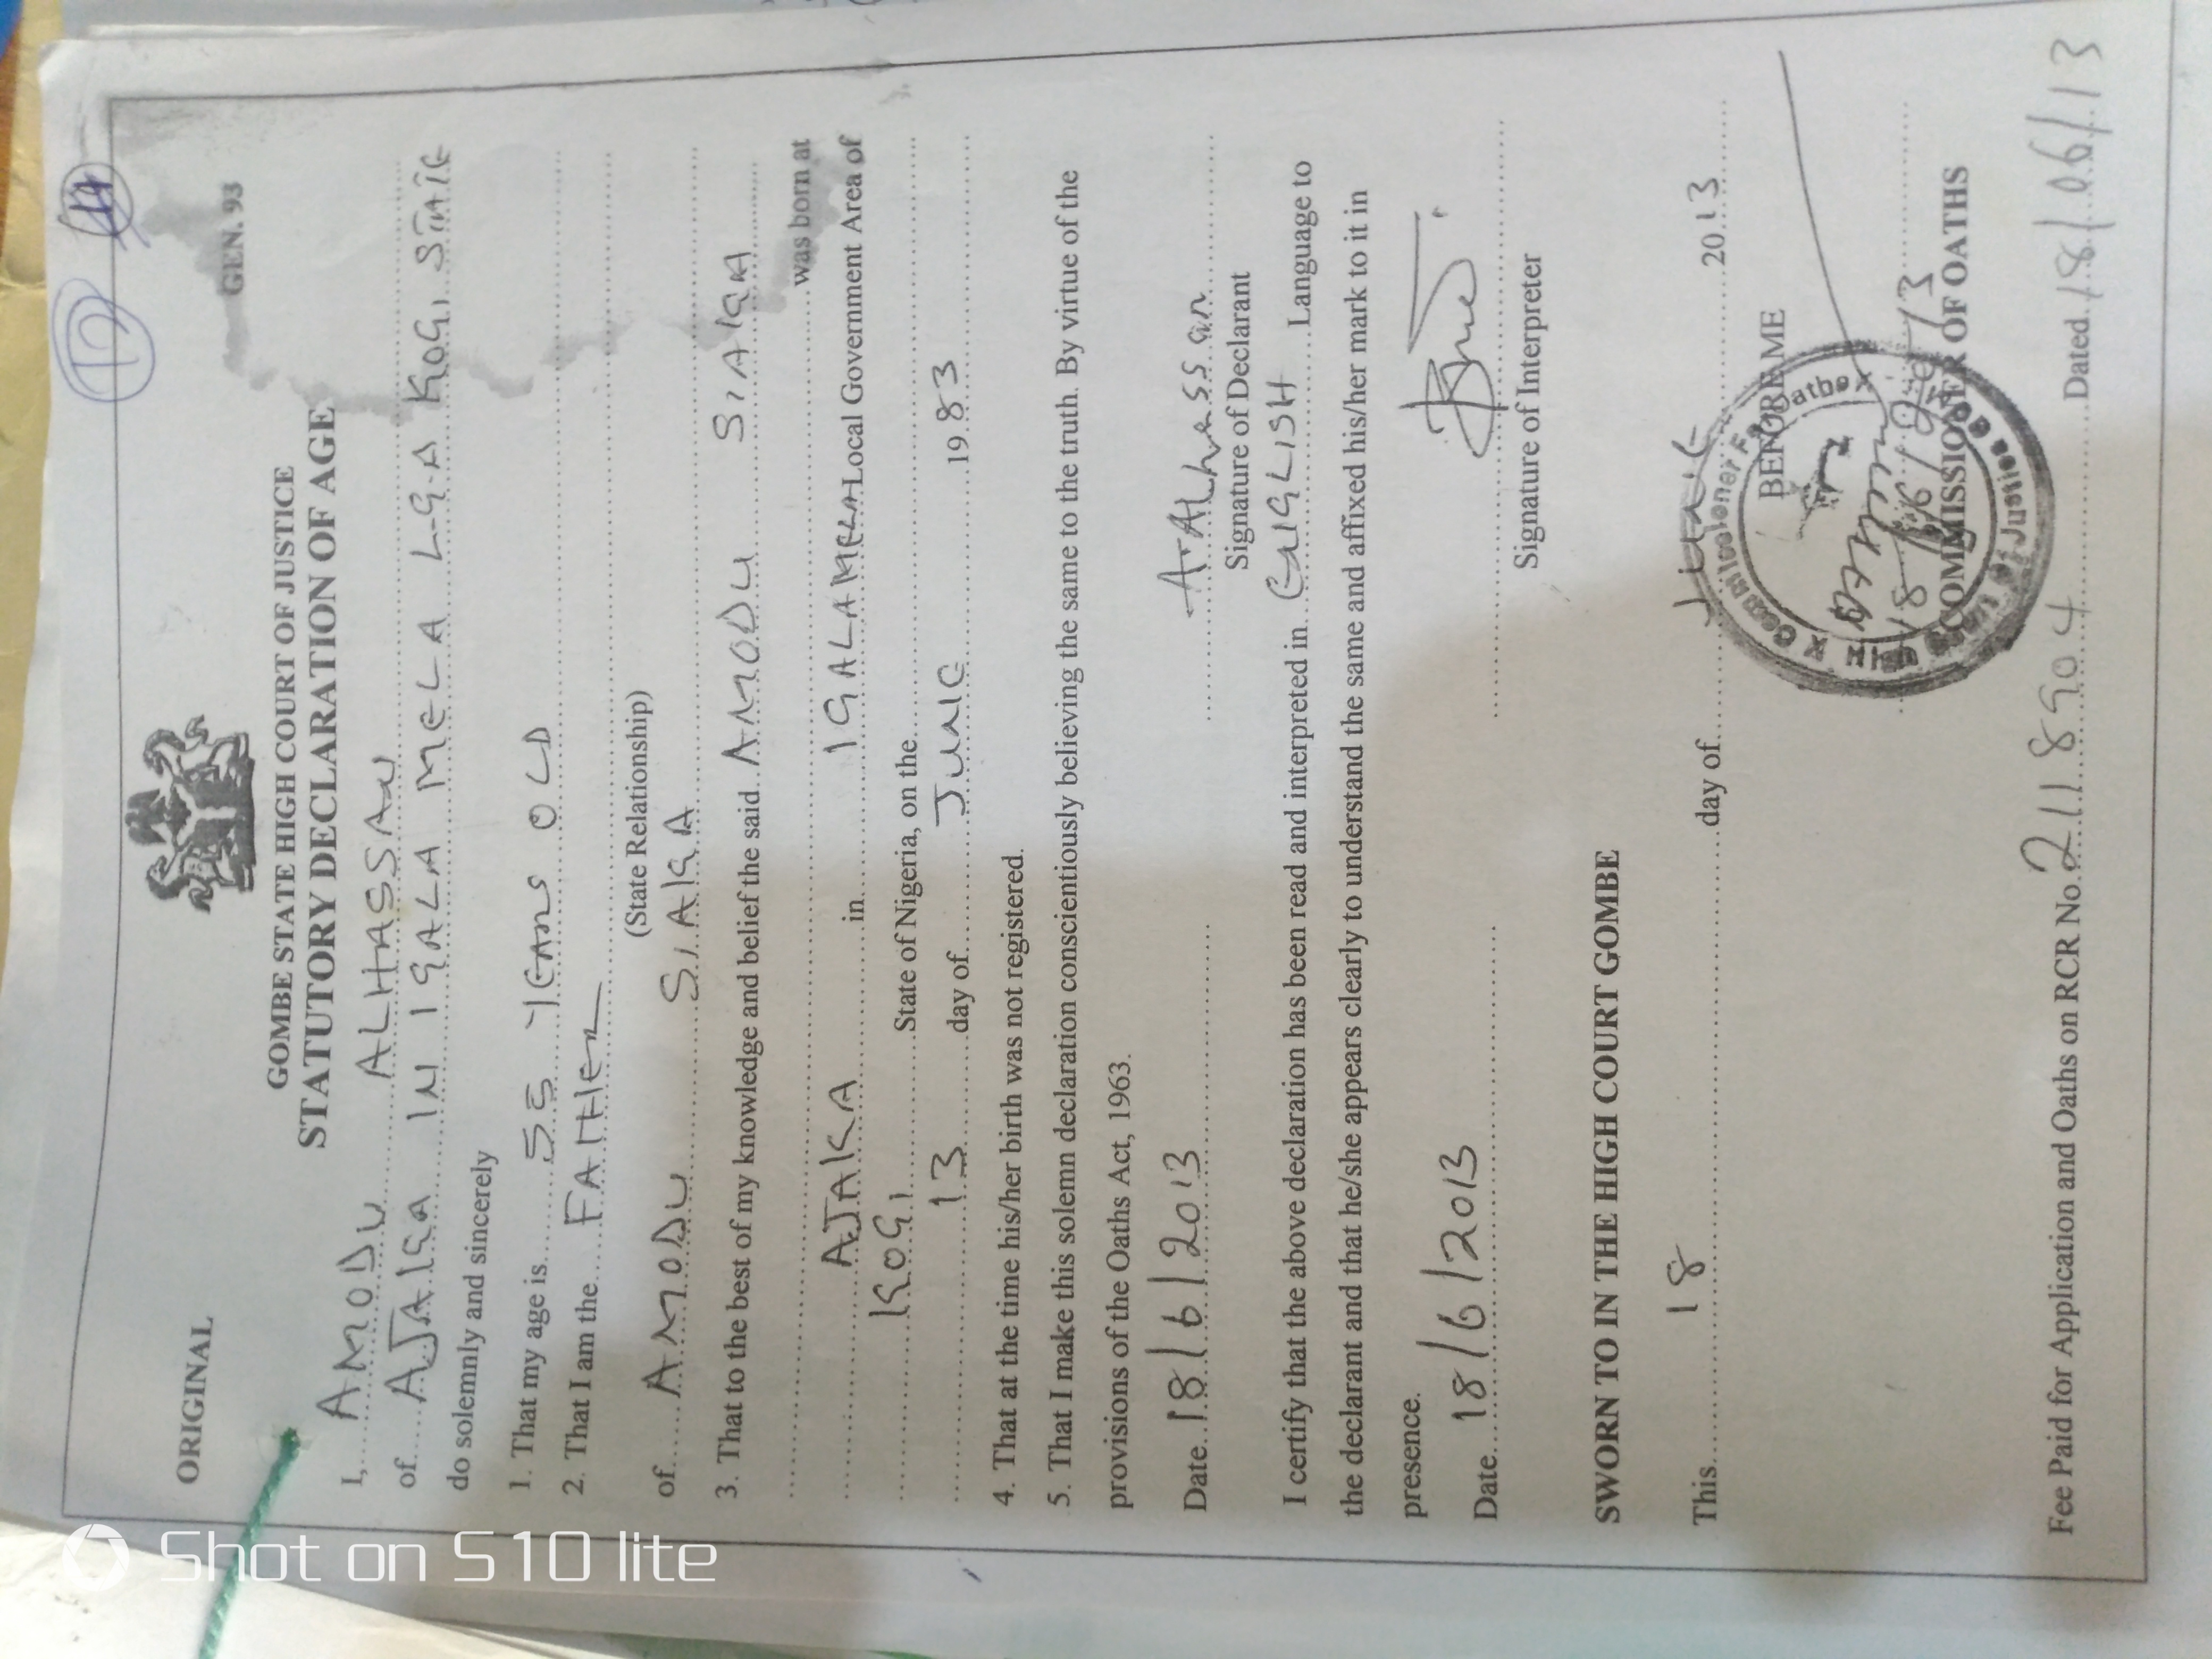 ORIGINAL
GEN. 93
GOMBE STATE HIGH COURT OF JUSTICE
STATUTORY DECLARATION OF AGE
I, AMODU ALHASSAN
of AJAKA IN IGALA MELA L.G.A KOGI STATE
do solemnly and sincerely
1. That my age is 55 YEARS OLD
2. That I am the FATHER
(State Relationship)
of AMODU SIAKA
3. That to the best of my knowledge and belief the said AMODU SIAKA
was born at
AJAKA in IGALAMELA Local Government Area of
KOGI State of Nigeria, on the
13 day of JUNE 1983
4. That at the time his/her birth was not registered.
5. That I make this solemn declaration conscientiously believing the same to the truth. By virtue of the
provisions of the Oaths Act, 1963.
Date 18/6/2013 A. Alhassan
Signature of Declarant
I certify that the above declaration has been read and interpreted in ENGLISH Language to
the declarant and that he/she appears clearly to understand the same and affixed his/her mark to it in
presence.
Date 18/6/2013
Signature of Interpreter
SWORN TO IN THE HIGH COURT GOMBE
This 18 day of June 2013
BEFORE ME
COMMISSIONER OF OATHS
Fee Paid for Application and Oaths on RCR No. 2118904 Dated 18/06/13
Shot on S10 lite